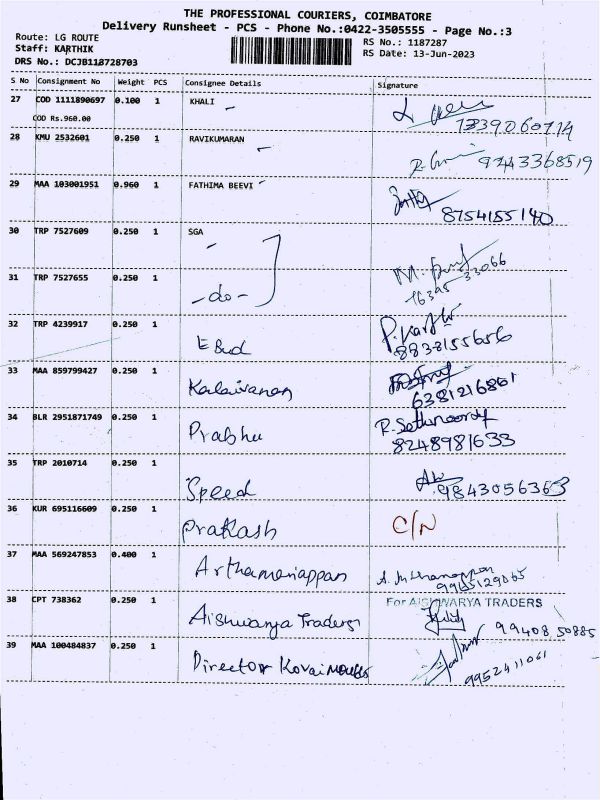 THE PROFESSIONAL COURIERS, COIMBATORE
Delivery Runsheet - PCS - Phone No.:0422-3505555 - Page No.:3
Route: LG ROUTE
RS No.: 1187287
Staff: KARTHIK
RS Date: 13-Jun-2023
DRS No.: DCJB118728703
S No Consignment No Weight PCS Consignee Details Signature
27 COD 1111890697 0.100 1 KHALI
COD Rs.960.00
28 KMU 2532601 0.250 1 RAVIKUMARAN
9243368519
29 MAA 103001951 0.960 1 FATHIMA BEEVI
8754155140
30 TRP 7527609 0.250 1 SGA
31 TRP 7527655 0.250 1 -do-
32 TRP 4239917 0.250 1 P.Karthi
8838155656
33 MAA 859799427 0.250 1 Kalaivanan
6381216861
34 BLR 2951871749 0.250 1 Prabhu
8248981633
35 TRP 2010714 0.250 1 Speed 9843056363
36 KUR 695116609 0.250 1 Prakash C/N
37 MAA 569247853 0.400 1 Arthamaniappan
38 CPT 738362 0.250 1 Aishwarya Traders For AISHWARYA TRADERS
99408 50885
39 MAA 100484837 0.250 1 Director Kovai
9952411061